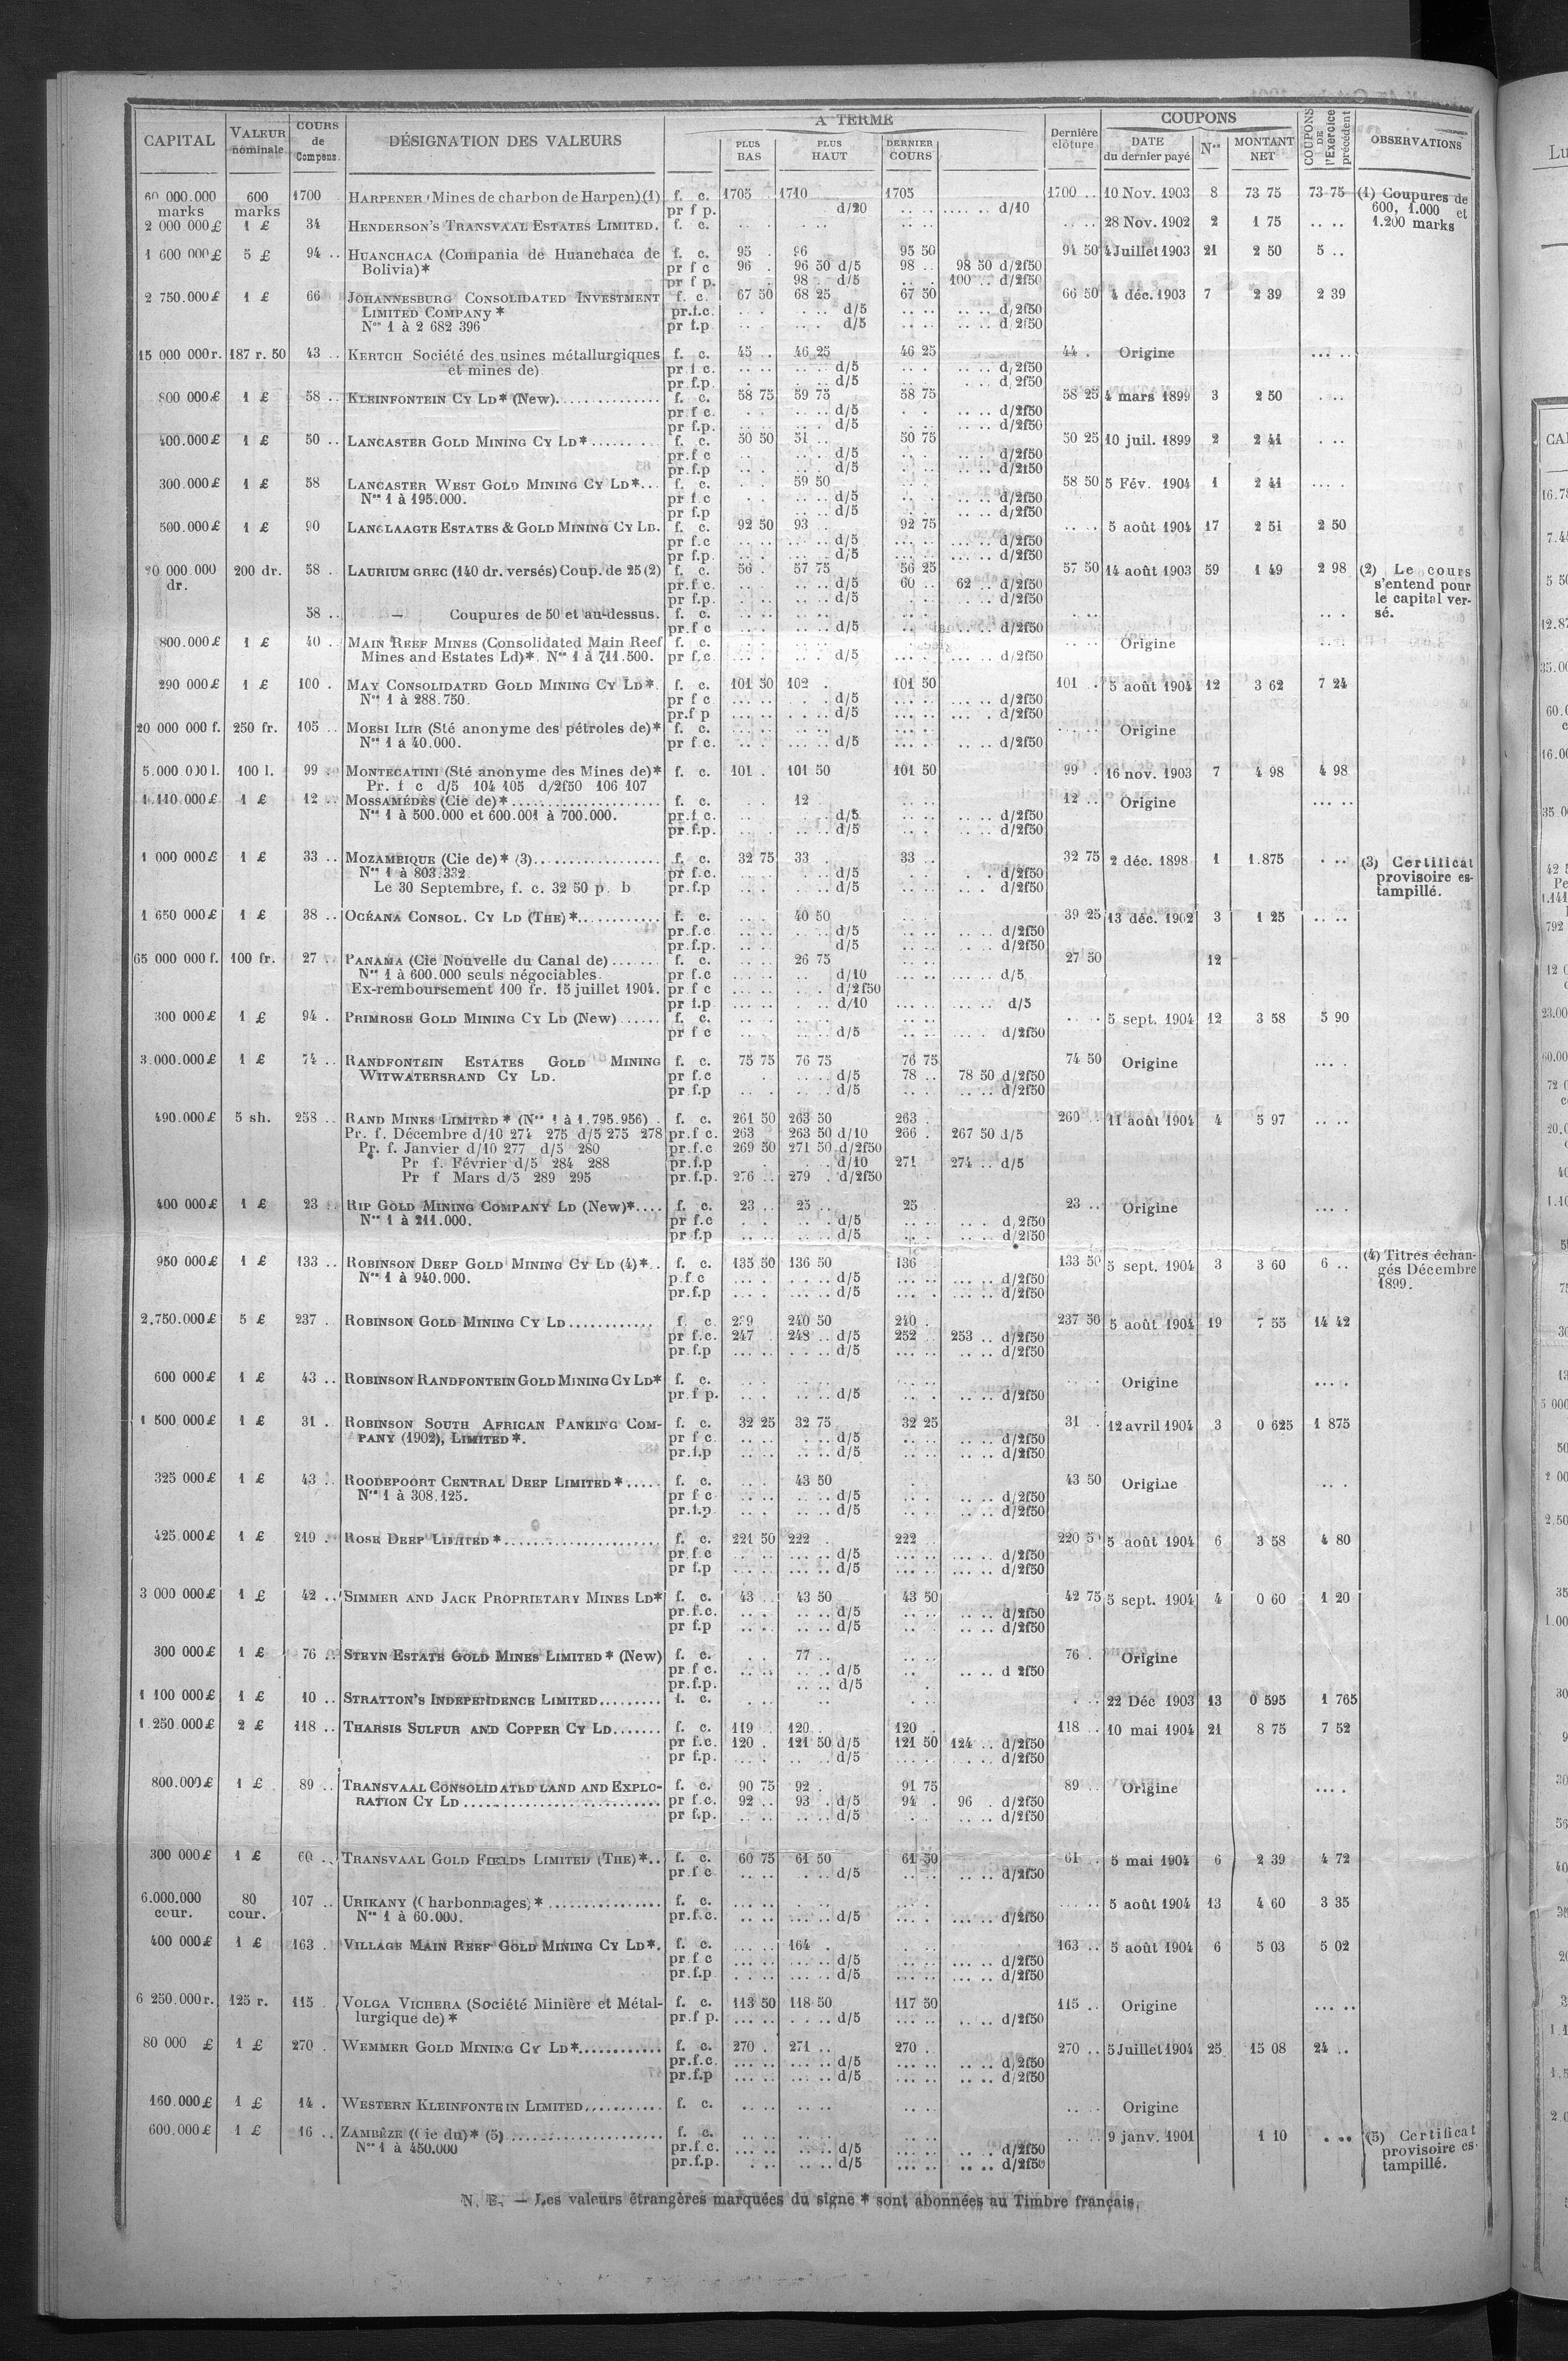 CAPITAL VALEUR nominale COURS de Compens. DÉSIGNATION DES VALEURS A TERME PLUS BAS PLUS HAUT DERNIER COURS Dernière clôture COUPONS DATE du dernier payé Nos MONTANT NET COUPONS DE l'Exercice précédent OBSERVATIONS
60 000.000 600 1700 HARPENER (Mines de charbon de Harpen) (1) f. c. 1705 1710 1705 1700 .. 10 Nov. 1903 8 73 75 73 75 (1) Coupures de
marks marks pr f p. d/20 .. .. .... .. d/10 600, 1.000 et
2 000 000 £ 1 £ 34 HENDERSON'S TRANSVAAL ESTATES LIMITED. f. c. .. .. 28 Nov. 1902 2 1 75 .. .. 1.200 marks
1 600 000 £ 5 £ 94 .. HUANCHACA (Compania de Huanchaca de f. c. 95 . 96 95 50 94 50 4 Juillet 1903 21 2 50 5 ..
Bolivia)* pr f c 96 . 96 50 d/5 98 .. 98 50 d/2f50
pr f p. 98 . d/5 100 .. d/2f50
2 750.000 £ 1 £ 66 JOHANNESBURG CONSOLIDATED INVESTMENT f. c. 67 50 68 25 67 50 66 50 4 déc. 1903 7 2 39 2 39
LIMITED COMPANY * pr.f.c. d/5 d/2f50
Nos 1 à 2 682 396 pr f.p d/5 d/2f50
15 000 000 r. 187 r. 50 43 .. KERTCH Société des usines métallurgiques f. c. 45 .. 46 25 46 25 44 . Origine
et mines de) pr f c. d/5 d/2f50
pr f.p. d/5 d/2f50
800 000 £ 1 £ 58 .. KLEINFONTEIN CY LD* (New). f. c. 58 75 59 75 58 75 58 25 4 mars 1899 3 2 50
pr f c. d/5 d/2f50
pr f.p. d/5 d/2f50
400.000 £ 1 £ 50 .. LANCASTER GOLD MINING CY LD* f. c. 50 50 51 .. 50 75 50 25 10 juil. 1899 2 2 41
pr.f c d/5 d/2f50
pr.f.p d/5 d/2f50
300.000 £ 1 £ 58 LANCASTER WEST GOLD MINING CY LD*.. f. c. 59 50 58 50 5 Fév. 1904 1 2 41
Nos 1 à 195.000. pr f c d/5 d/2f50
pr f.p d/5 d/2f50
500.000 £ 1 £ 90 LANGLAAGTE ESTATES & GOLD MINING CY LD. f. c. 92 50 93 . 92 75 5 août 1904 17 2 51 2 50
pr f.c d/5 d/2f50
pr f.p. d/5 d/2f50
20 000 000 200 dr. 58 . LAURIUM GREC (140 dr. versés) Coup. de 25 (2) f. c. 56 . 57 75 56 25 57 50 14 août 1903 59 1 49 2 98 (2) Le cours
dr. pr.f c. d/5 60 .. 62 .. d/2f50 s'entend pour
pr f.p. d/5 d/2f50 le capital ver-
58 .. — Coupures de 50 et au-dessus. f. c. sé.
pr.f c d/5 d/2f50
800.000 £ 1 £ 40 .. MAIN REEF MINES (Consolidated Main Reef f. c. Origine
Mines and Estates Ld)*. Nos 1 à 711.500. pr f.c. d/5 d/2f50
290 000 £ 1 £ 100 . MAY CONSOLIDATED GOLD MINING CY LD*. f. c. 101 50 102 . 101 50 101 . 5 août 1904 12 3 62 7 24
Nos 1 à 288.750. pr f c d/5 d/2f50
pr.f p d/5 d/2f50
20 000 000 f. 250 fr. 105 .. MOESI ILIR (Sté anonyme des pétroles de)* f. c. Origine
Nos 1 à 40.000. pr f c. d/5 d/2f50
5.000 000 l. 100 l. 99 . MONTECATINI (Sté anonyme des Mines de)* f. c. 101 . 101 50 101 50 99 . 16 nov. 1903 7 4 98 4 98
Pr. f c d/5 104 105 d/2f50 106 107
1.110.000 £ 1 £ 12 .. MOSSAMÉDÈS (Cie de)* f. c. 12 12 .. Origine
Nos 1 à 500.000 et 600.001 à 700.000. pr.f c. d/5 d/2f50
pr.f.p. d/5 d/2f50
1 000 000 £ 1 £ 33 .. MOZAMBIQUE (Cie de)* (3) f. c. 32 75 33 . 33 .. 32 75 2 déc. 1898 1 1.875 (3) Certificat
Nos 1 à 803.332 pr f.c. d/5 d/2f50 provisoire es-
Le 30 Septembre, f. c. 32 50 p. b pr.f.p d/5 d/2f50 tampillé.
1 650 000 £ 1 £ 38 .. OCÉANA CONSOL. CY LD (THE)* f. c. 40 50 39 25 13 déc. 1902 3 1 25
pr.f.c d/5 d/2f50
pr.f.p. d/5 d/2f50
65 000 000 f. 100 fr. 27 .. PANAMA (Cie Nouvelle du Canal de) f. c. 26 75 27 50 12
Nos 1 à 600.000 seuls négociables. pr f.c d/10 d/5
Ex-remboursement 100 fr. 15 juillet 1904. pr f c d/2f50
pr f.p d/10 d/5
300 000 £ 1 £ 94 . PRIMROSE GOLD MINING CY LD (New) f. c. 5 sept. 1904 12 3 58 5 90
pr f c d/5 d/2f50
3.000.000 £ 1 £ 74 .. RANDFONTEIN ESTATES GOLD MINING f. c. 75 75 76 75 76 75 74 50 Origine
WITWATERSRAND CY LD. pr f.c d/5 78 .. 78 50 d/2f50
pr f.p d/5 d/2f50
490.000 £ 5 sh. 258 .. RAND MINES LIMITED * (Nos 1 à 1.795.956) f. c. 261 50 263 50 263 . 260 .. 11 août 1904 4 5 97
Pr. f. Décembre d/10 274 275 d/5 275 278 pr.f c. 263 263 50 d/10 266 . 267 50 d/5
Pr. f. Janvier d/10 277 d/5 280 pr.f.c 269 50 271 50 d/2f50
Pr f. Février d/5 284 288 pr.f.p d/10 271 274 .. d/5
Pr f Mars d/5 289 295 pr.f.p. 276 .. 279 . d/2f50
400 000 £ 1 £ 23 .. RIP GOLD MINING COMPANY LD (New)* f. c. 23 .. 25 .. 25 23 .. Origine
Nos 1 à 211.000. pr f.c d/5 d/2f50
pr f.p d/5 d/2f50
950 000 £ 1 £ 133 .. ROBINSON DEEP GOLD MINING CY LD (4)*.. f. c. 135 50 136 50 136 133 50 5 sept. 1904 3 3 60 6 .. (4) Titres échan-
Nos 1 à 940.000. p.f c d/5 d/2f50 gés Décembre
pr.f.p d/5 d/2f50 1899.
2.750.000 £ 5 £ 237 . ROBINSON GOLD MINING CY LD f. c 239 240 50 240 . 237 50 5 août 1904 19 7 55 14 42
pr f.c. 247 . 248 .. d/5 252 .. 253 .. d/2f50
pr.f.p d/5 d/2f50
600 000 £ 1 £ 43 .. ROBINSON RANDFONTEIN GOLD MINING CY LD* f. c. Origine
pr.f p. d/5 d/2f50
1 500 000 £ 1 £ 31 . ROBINSON SOUTH AFRICAN BANKING COM- f. c. 32 25 32 75 32 25 31 . 12 avril 1904 3 0 625 1 875
PANY (1902), LIMITED *. pr f c d/5 d/2f50
pr.f.p d/5 d/2f50
325 000 £ 1 £ 43 .. ROODEPOORT CENTRAL DEEP LIMITED * f. c. 43 50 43 50 Origine
Nos 1 à 308.125. pr f c d/5 d/2f50
pr.f.p d/5 d/2f50
425.000 £ 1 £ 219 . ROSE DEEP LIMITED * f. c. 221 50 222 222 220 5 août 1904 6 3 58 4 80
pr.f.c d/5 d/2f50
pr f.p d/5 d/2f50
3 000 000 £ 1 £ 42 .. SIMMER AND JACK PROPRIETARY MINES LD* f. c. 43 .. 43 50 43 50 42 75 5 sept. 1904 4 0 60 1 20
pr.f.c. d/5 d/2f50
pr f.p d/5 d/2f50
300 000 £ 1 £ 76 .. STEYN ESTATE GOLD MINES LIMITED * (New) f. c. 77 .. 76 . Origine
pr f c. d/5 d 2f50
pr.f.p. d/5
1 100 000 £ 1 £ 10 .. STRATTON'S INDEPENDENCE LIMITED f. c. 22 Déc 1903 13 0 595 1 765
1.250.000 £ 2 £ 118 .. THARSIS SULFUR AND COPPER CY LD f. c. 119 . 120 . 120 . 118 .. 10 mai 1904 21 8 75 7 52
pr f.c. 120 . 121 50 d/5 121 50 124 .. d/2f50
pr f.p. d/5 d/2f50
800.000 £ 1 £ 89 .. TRANSVAAL CONSOLIDATED LAND AND EXPLO- f. c. 90 75 92 . 91 75 89 .. Origine
RATION CY LD pr f.c. 92 .. 93 . d/5 94 . 96 . d/2f50
pr f.p. d/5 d/2f50
300 000 £ 1 £ 60 .. TRANSVAAL GOLD FIELDS LIMITED (THE)*.. f. c. 60 75 61 50 61 50 61 .. 5 mai 1904 6 2 39 4 72
pr.f c d/5 d/2f50
6.000.000 80 107 .. URIKANY (Charbonnages) * f. c. 5 août 1904 13 4 60 3 35
cour. cour. Nos 1 à 60.000. pr.f.c. d/5 d/2f50
400 000 £ 1 £ 163 . VILLAGE MAIN REEF GOLD MINING CY LD*. f. c. 164 . 163 .. 5 août 1904 6 5 03 5 02
pr f c d/5 d/2f50
pr.f.p d/5 d/2f50
6 250.000 r. 125 r. 115 . VOLGA VICHERA (Société Minière et Métal- f. c. 113 50 118 50 117 50 115 .. Origine
lurgique de) * pr.f p. d/5 d/2f50
80 000 £ 1 £ 270 . WEMMER GOLD MINING CY LD* f. c. 270 . 271 .. 270 . 270 .. 5 Juillet 1904 25 15 08 24 ..
pr.f.c. d/5 d/2f50
pr.f.p d/5 d/2f50
160.000 £ 1 £ 14 . WESTERN KLEINFONTEIN LIMITED f. c. Origine
600.000 £ 1 £ 16 .. ZAMBÈZE (Cie du)* (5) f. c. 9 janv. 1901 1 10 (5) Certificat
Nos 1 à 450.000 pr.f.c. d/5 d/2f50 provisoire es-
pr.f.p. d/5 d/2f50 tampillé.
N. B. — Les valeurs étrangères marquées du signe * sont abonnées au Timbre français.